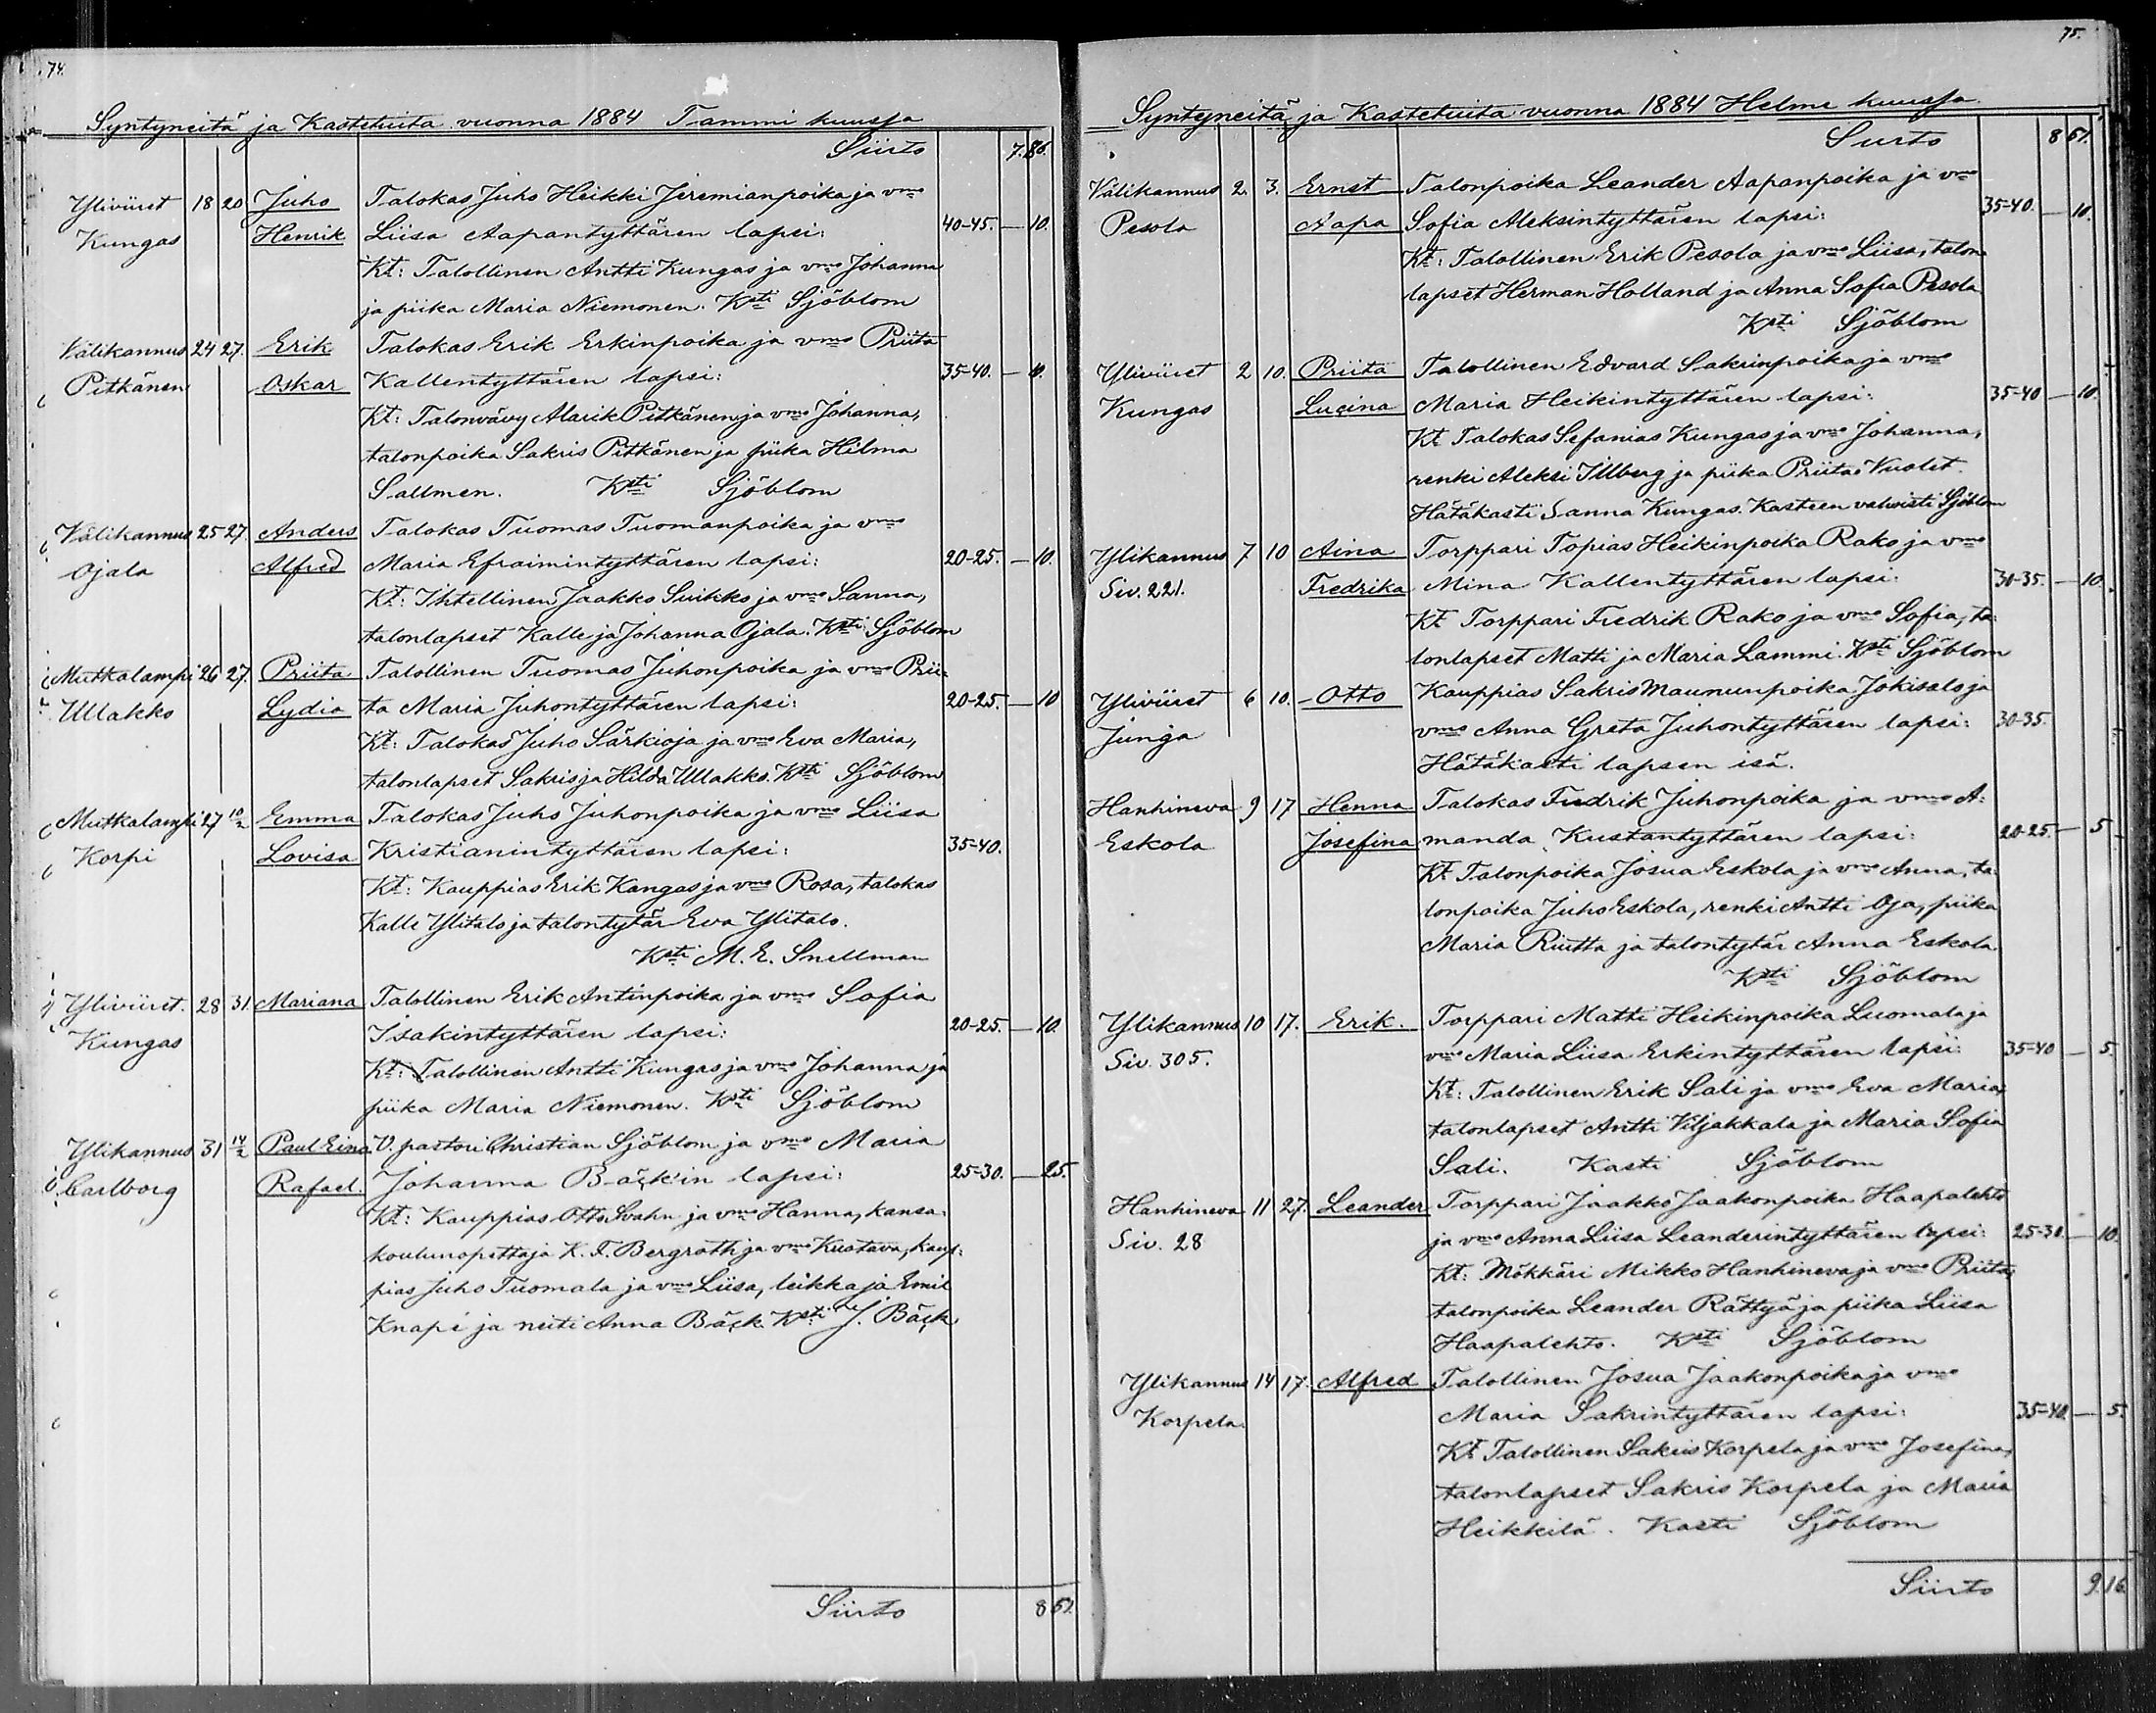 74.
Syntyneitä ja Kastetuita vuonna 1884 Tammi kuussa
Siirto 7. 86.
Yliviiret 18 20 Juho Talokas Juho Heikki Jeremianpoika ja vmo
Kungas Henrik Liisa Aapantyttären lapsi: 40-45. — 10.
Kt: Talollinen Antti Kungas ja vmo Johanna
ja piika Maria Niemonen. Ksti Sjöblom
Välikannus 24 27. Erik Talokas Erik Erkinpoika ja vmo Priita
Pitkänen Oskar Kallentyttären lapsi: 35-40. — 10.
Kt: Talonvävy Alarik Pitkänen ja vmo Johanna,
talonpoika Sakris Pitkänen ja piika Hilma
Sallmen. Ksti Sjöblom
Välikannus 25 27 Anders Talokas Tuomas Tuomanpoika ja vmo
Ojala Alfred Maria Efraimintyttären lapsi: 20-25. — 10.
Kt: Ihtellinen Jaakko Suikko ja vmo Sanna,
talonlapset Kalle ja Johanna Ojala. Ksti Sjöblom
Mutkalampi 26 27. Priita Talollinen Tuomas Juhonpoika ja vmo Prii-
Ullakko Lydia ta Maria Juhontyttären lapsi: 20-25. — 10
Kt: Talokas Juho Särkioja ja vmo Eva Maria,
talonlapset Sakris ja Hilda Ullakko. Ksti Sjöblom
Mutkalampi 27 10/2 Emma Talokas Juho Juhonpoika ja vmo Liisa
Korpi Lovisa Kristianintyttären lapsi: 35-40.
Kt: Kauppias Erik Kangas ja vmo Rosa, talokas
Kalle Ylitalo ja talontytär Eva Ylitalo.
Ksti M. E. Snellman
Yliviiret. 28 31. Mariana Talollinen Erik Antinpoika ja vmo Sofia
Kungas Isakintyttären lapsi: 20-25. — 10.
Kt: Talollinen Antti Kungas ja vmo Johanna ja
piika Maria Niemonen. Ksti Sjöblom
Ylikannus 31 14/2 Paul Eino V. pastori Christian Sjöblom ja vmo Maria
Carlborg Rafael. Johanna Bäck'in lapsi: 25-30. — 25.
Kt: Kauppias Otto Svahn ja vmo Hanna, kansa-
koulunopettaja K. F. Bergroth ja vmo Kustava, kaup-
pias Juho Tuomala ja vmo Liisa, leikkaja Emil
Knape ja neiti Anna Bäck. Ksti J. Bäck
Siirto 8 61.
75.
Syntyneitä ja Kastetuita vuonna 1884 Helme kuussa
Siirto 8 61.
Välikannus 2. 3. Ernst Talonpoika Leander Aapanpoika ja vmo
Pesola Aapa Sofia Aleksintyttären lapsi: 35-40. — 10.
Kt: Talollinen Erik Pesola ja vmo Liisa, talon
lapset Herman Holland ja Anna Sofia Pesola
Ksti Sjöblom
Yliviiret 2 10. Priita Talollinen Edvard Sakrinpoika ja vmo
Kungas Lucina Maria Heikintyttären lapsi: 35-40 — 10.
Kt Talokas Sefanias Kungas ja vmo Johanna,
renki Aleksi Illberg ja piika Priita Vuolet.
Hätäkasti Sanna Kungas. Kasteen vahvisti Sjöblom
Ylikannus 7 10 Aina Torppari Topias Heikinpoika Rako ja vmo
Siv. 221. Fredrika Mina Kallentyttären lapsi: 30-35. — 10.
Kt Torppari Fredrik Rako ja vmo Sofia, ta-
lonlapset Matti ja Maria Lammi. Ksti Sjöblom
Yliviiret 6 10. Otto Kauppias Sakris Maununpoika Jokisalo ja
Junga vmo Anna Greta Juhontyttären lapsi: 30-35.
Hätäkasti lapsen isä.
Hanhineva 9 17 Henna Talokas Fredrik Juhonpoika ja vmo A-
Eskola Josefina manda Kustantyttären lapsi: 20-25. — 5
Kt Talonpoika Josua Eskola ja vmo Anna, ta-
lonpoika Juho Eskola, renki Antti Oja, piika
Maria Riutta ja talontytär Anna Eskola
Ksti Sjöblom
Ylikannus 10 17. Erik. Torppari Matti Heikinpoika Luomala ja
Siv. 305. vmo Maria Liisa Erkintyttären lapsi: 35-40 — 5.
Kt: Talollinen Erik Sali ja vmo Eva Maria,
talonlapset Antti Viljakkala ja Maria Sofia
Sali. Kasti Sjöblom
Hanhineva 11 27. Leander Torppari Jaakko Jaakonpoika Haapalehto
Siv. 28 ja vmo Anna Liisa Leanderintyttären lapsi: 25-30. — 10.
Kt: Mökkäri Mikko Hanhineva ja vmo Priita,
talonpoika Leander Rättyä ja piika Liisa
Haapalehto. Ksti Sjöblom
Ylikannus 14 17. Alfred Talollinen Josua Jaakonpoika ja vmo
Korpela Maria Sakrintyttären lapsi: 35-40. — 5.
Kt Talollinen Sakris Korpela ja vmo Josefina,
talonlapset Sakris Korpela ja Maria
Heikkilä. Kasti Sjöblom
Siirto 9. 16